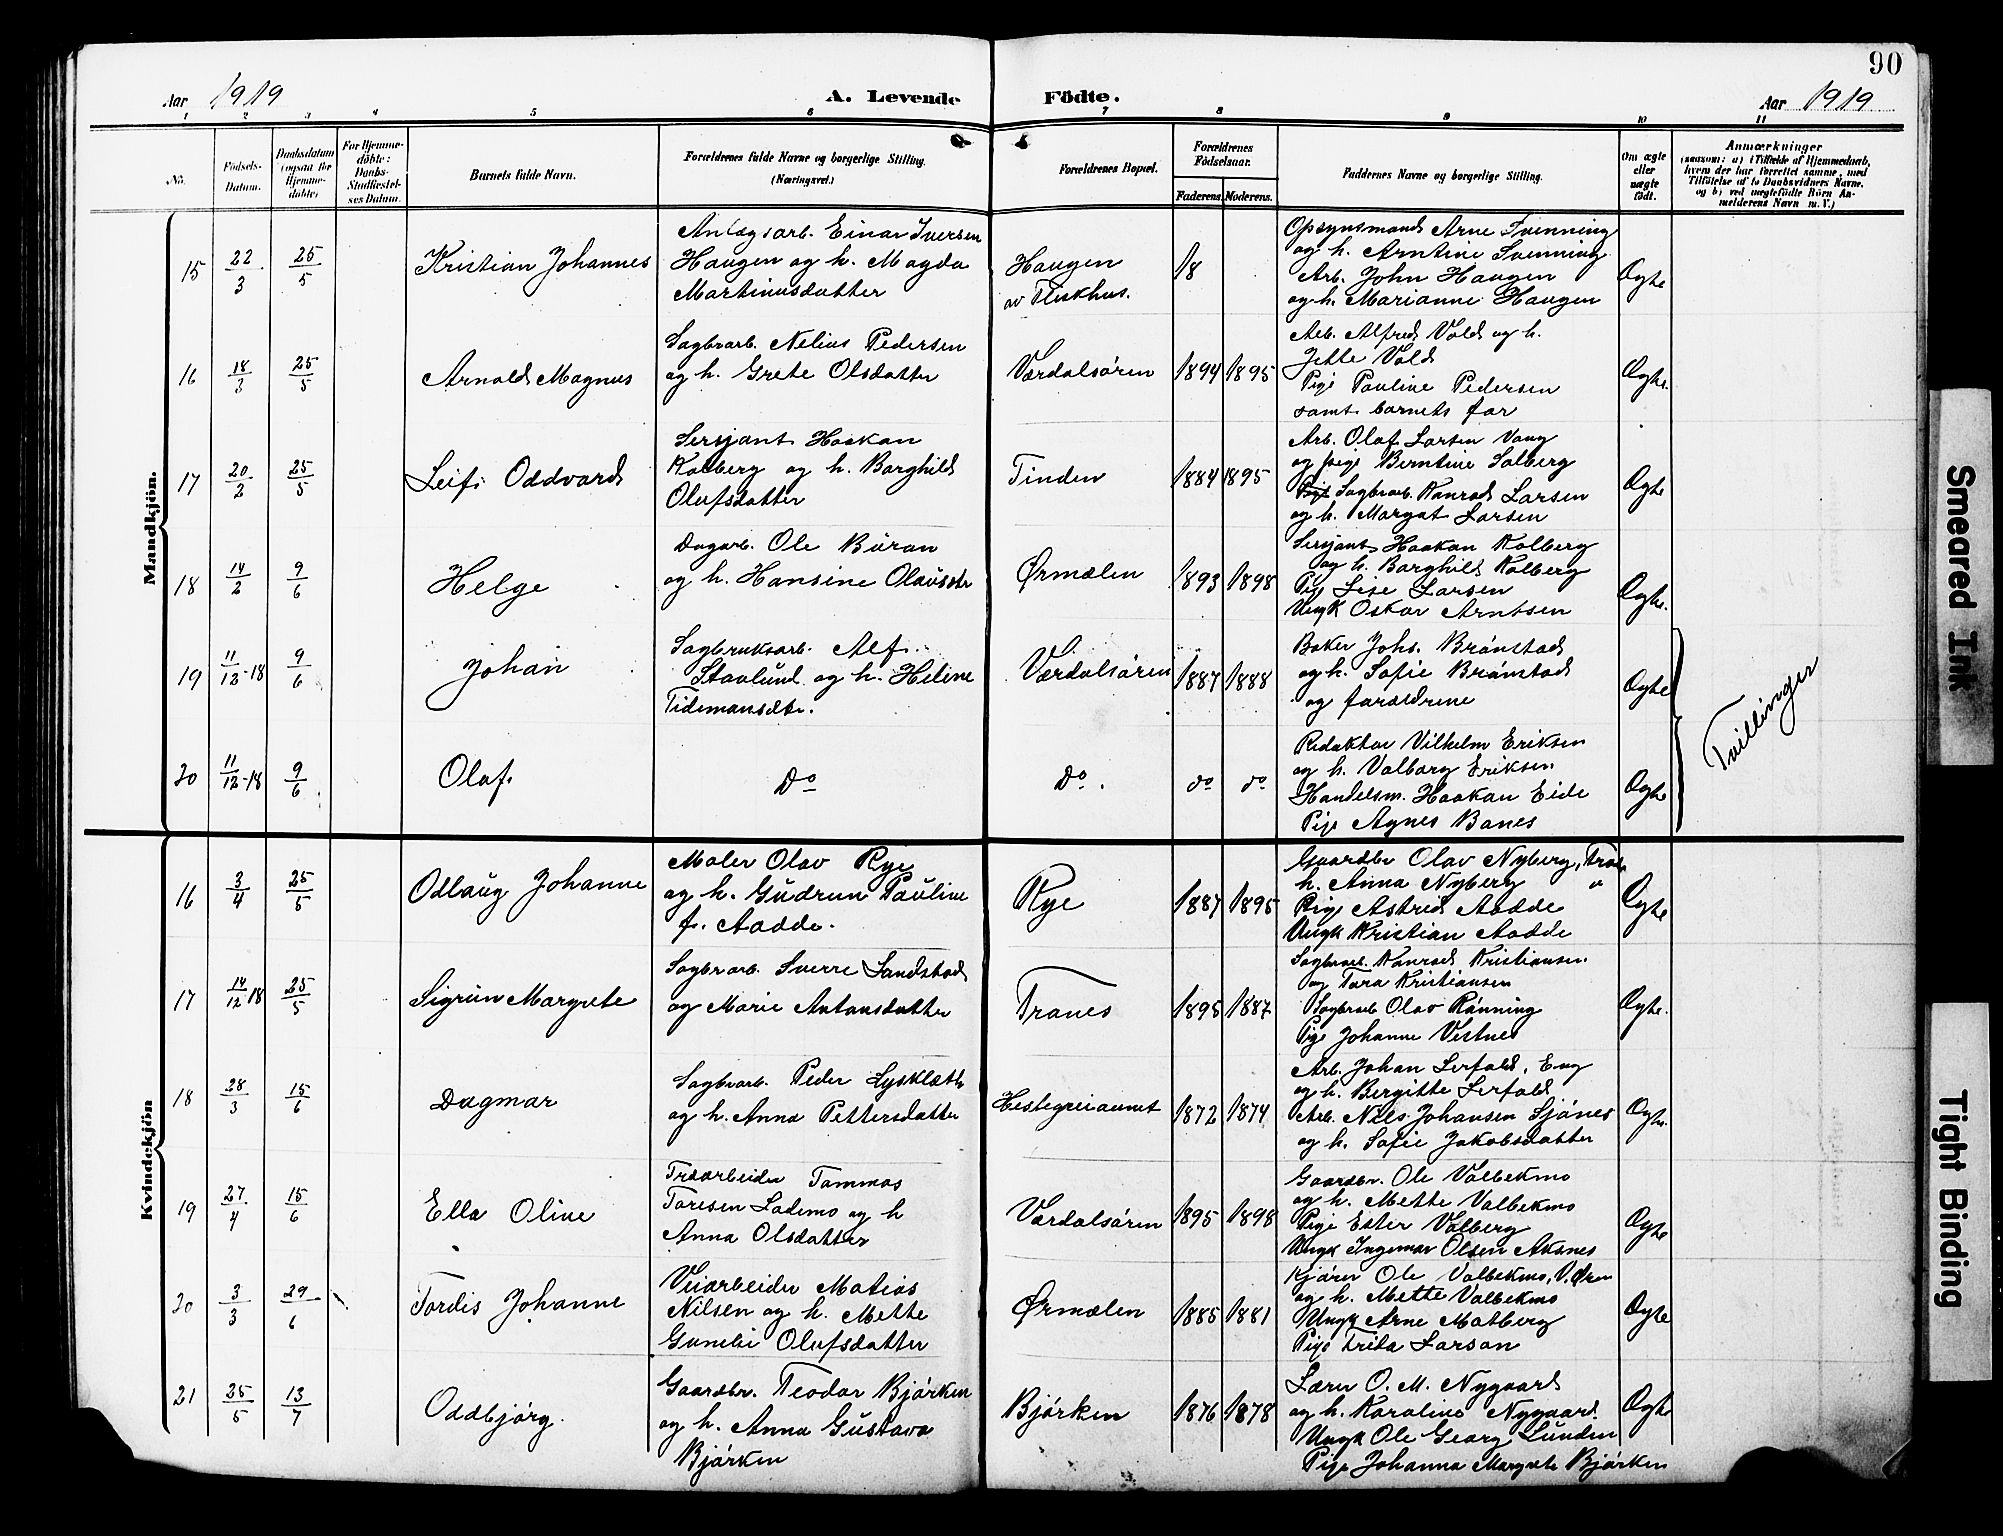 90
Aar 1919
A. Levende
Födte.
Aar 1919
1 2 3 4 5 6 7 8 9 10 11
No.
Födsels-
Datum.
Daabsdatum
(ogsaa for
Hjemme-
døbte)
For Hjemme-
døbte:
Daabs-
Stadfæstel-
ses Datum.
Barnets fulde Navn.
Forældrenes fulde Navne og borgerlige Stilling.
(Næringsvei.)
Forældrenes Bopæl.
Forældrenes
Födselsaar.
Faderens. Moderens.
Faddernes Navne og borgerlige Stilling.
Om ægte
eller
uægte
født.
Anmærkninger
(saasom: a) i Tilfælde af Hjemmedaab,
hvem der har forrettet samme, med
Tilføielse af to Daabsvidners Navne,
og b) ved uægtefødte Börn An-
melderens Navn m. V.)
Mandkjön.
15 22/3 25/5 Kristian Johannes
Anlægsarb. Einar Iversen
Haugen og h. Magda
Martinusdatter
Haugen
av
18
Opsynsmand Arne Svenning
og h. Arntine Svenning
Arb. John Haugen
og h. Marianne Haugen
Ægte
16 18/3 25/5 Arnold Magnus
Sagbrarb. Nelius Pedersen
og h. Grete Olsdatter
Værdalsören
1894 1895
Arb. Alfred Vold og h.
Jette Vold
Pige Pauline Pedersen
samt barnets far
Ægte.
17 20/2 25/5 Leif Oddvard
Sersjant Haakan
Kolberg og h. Borghild
Olufsdatter
Tinden
1884 1895
Arb. Olaf Larsen Vang
og pige Berntine Solberg
Pige Sagbrarb. Konrad Larsen
og h. Margat Larsen
Ægte
18 14/2 9/6 Helge
Dagarb. Ole Buran
og h. Hansine Olausdtr
Ørmælen
1893 1898
Sersjant Haakan Kolberg
og h. Borghild Kolberg
Pige Lise Larsen
Ungk Oskar Arntsen
Ægte.
19 11/12-18 9/6 Johan
Sagbruksarb. Alf
Stavlund og h. Heline
Tidemansdtr.
Værdalsören
1887 1888
Baker Johs. Brönstad
og h. Sofie Brönstad
og forældrene
Ægte
Tvillinger
20 11/12-18 9/6 Olaf
Do
Do.
do do
Redaktör Vilhelm Eriksen
og h. Valborg Eriksen
Handelsm. Haakan Eide
Pige Agnes Banes
Ægte
Kvindekjön
16 3/4 25/5 Odlaug Johanne
Maler Olav Rye
og h. Gudrun Pauline
f. Aadde.
Rye
1887 1895
Gaardbr Olav Nyberg,
h. Anna Nyberg
Pige Astrid Aadde
Ungk Kristian Aadde
Ægte
17 14/12 18 25/5 Sigrun Margrete
Sagbrarb. Sverre Sandstad
og Marie Antonsdatter
Tranes
1895 1887
Sagbrarb. Konrad Kristiansen
og Tora Kristiansen
Sagbrarb Olav Rönning
Pige Johanne Vestnes
Ægte.
18 28/3 15/6 Dagmar
Sagbrarb. Peder Lysklætt
og h. Anna Pettersdatter
1872 1874
Arb. Johan Lerfald, Eng
og h. Bergitte Lerfald
Arb. Nils Johansen Sjönes
og h. Sofie Jakobsdatter
Ægte.
19 27/4 15/6 Ella Oline
Træarbeider Tommas
Toresen Lademo og h
Anna Olsdatter
Værdalsören
1895 1898
Gaardbr. Ole Valbekmo
og h. Mette Valbekmo
Pige Ester Valberg
Ungk Ingemar Olsen Aksnes
Ægte
20 3/3 29/6 Tordis Johanne
Veiarbeider Matias
Nilsen og h. Mette
Gunelie Olufsdatter
Ørmælen
1885 1881
Kjörer Ole Valbekmo, V. Ören
og h. Mette Valbekmo
Ungk Arne Motberg
Pige Frida Larsen
Ægte
21 25/5 13/7 Oddbjörg.
Gaardbr. Teodor Björken
og h. Anna Gustava
Björken
Björken
1876 1878
Lærer O. M. Nygaard
og h. Karoline Nygaard.
Ungk Ole Georg Lunden
Pige Johanna Margrete Björken
Ægte
Smeared Ink
Tight Binding